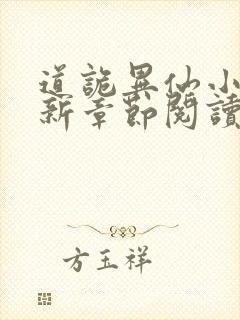 道詭異仙小
新章節閱讀
方玉祥